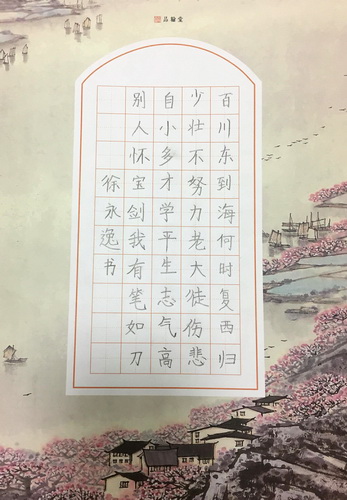 品翰堂
百川东到海何时复西归
少壮不努力老大徒伤悲
自小多才学平生志气高
别人怀宝剑我有笔如刀
徐永逸书